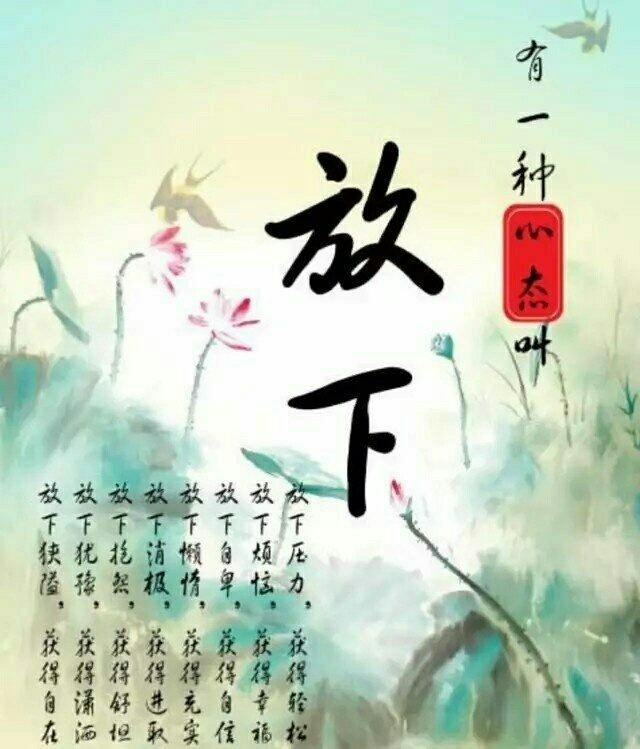 有一种心态叫
放下
放下压力，获得轻松
放下烦恼，获得幸福
放下自卑，获得自信
放下懒惰，获得充实
放下消极，获得进取
放下抱怨，获得舒坦
放下犹豫，获得潇洒
放下狭隘，获得自在